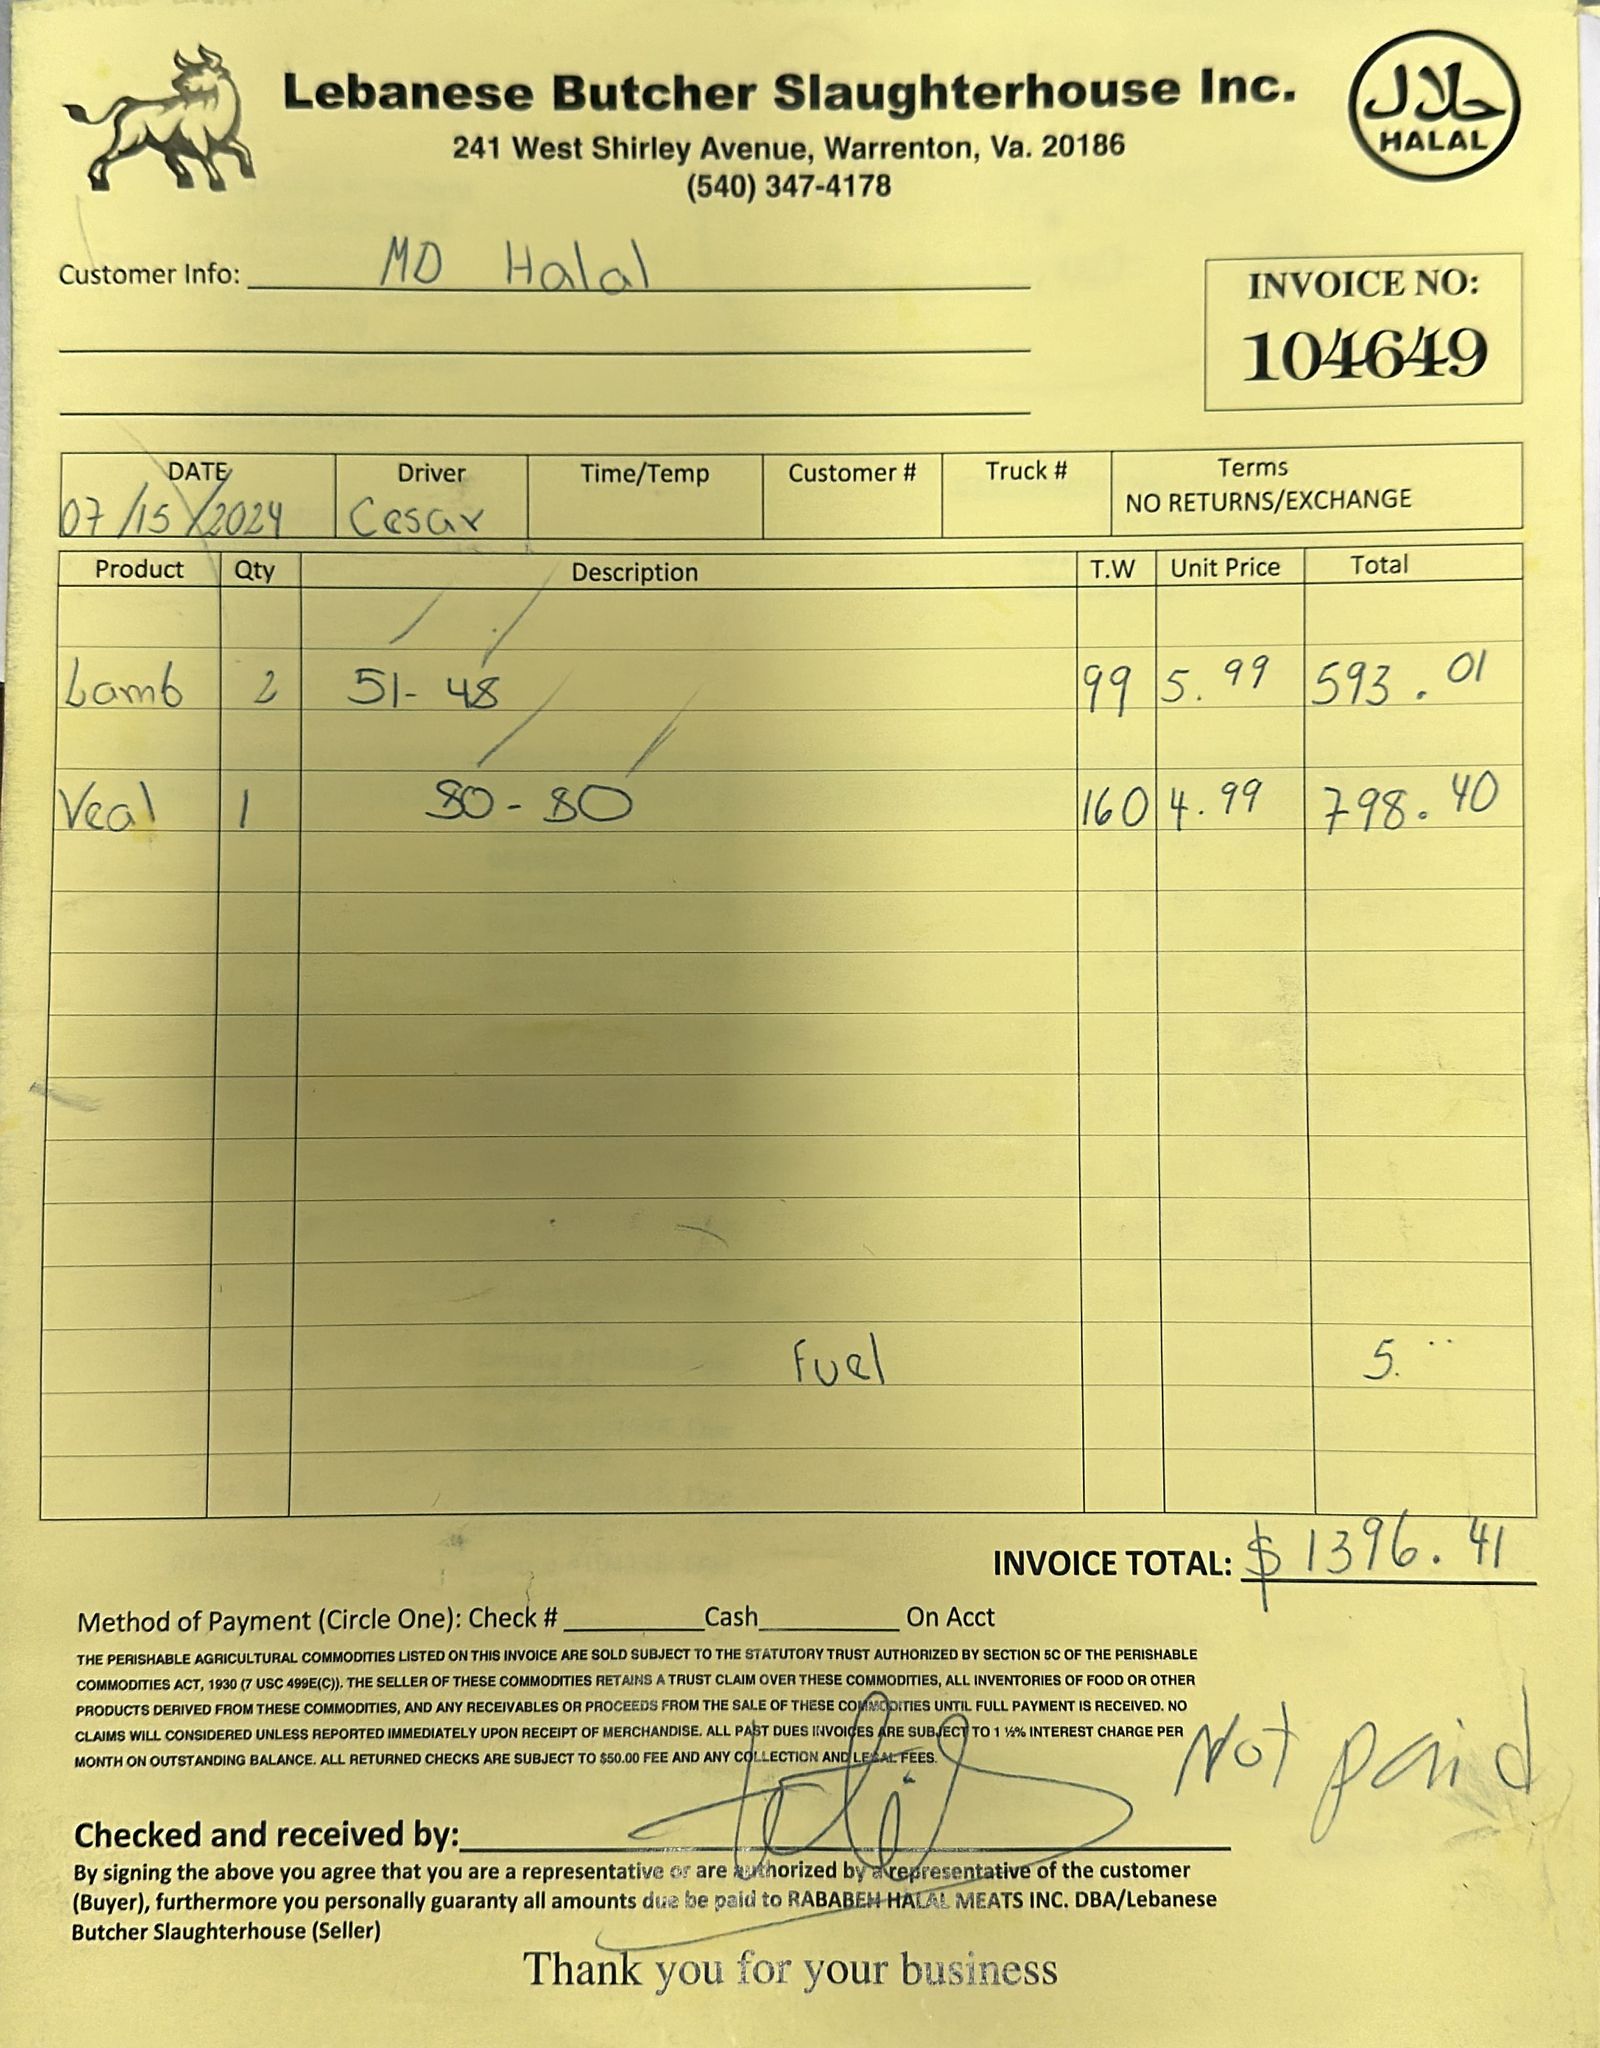 Lebanese Butcher Slaughterhouse Inc.
حلال
HALAL
241 West Shirley Avenue, Warrenton, Va. 20186
(540) 347-4178
Customer Info: MD Halal
INVOICE NO:
104649
DATE Driver Time/Temp Customer # Truck # Terms
07/15/2024 Cesar NO RETURNS/EXCHANGE
Product Qty Description T.W Unit Price Total
Lamb 2 51-48 99 5.99 593.01
Veal 1 80-80 160 4.99 798.40
Fuel 5.
INVOICE TOTAL: $1396.41
Method of Payment (Circle One): Check # Cash On Acct
THE PERISHABLE AGRICULTURAL COMMODITIES LISTED ON THIS INVOICE ARE SOLD SUBJECT TO THE STATUTORY TRUST AUTHORIZED BY SECTION 5C OF THE PERISHABLE
COMMODITIES ACT, 1930 (7 USC 499E(C)). THE SELLER OF THESE COMMODITIES RETAINS A TRUST CLAIM OVER THESE COMMODITIES, ALL INVENTORIES OF FOOD OR OTHER
PRODUCTS DERIVED FROM THESE COMMODITIES, AND ANY RECEIVABLES OR PROCEEDS FROM THE SALE OF THESE COMMODITIES UNTIL FULL PAYMENT IS RECEIVED. NO
CLAIMS WILL CONSIDERED UNLESS REPORTED IMMEDIATELY UPON RECEIPT OF MERCHANDISE. ALL PAST DUES INVOICES ARE SUBJECT TO 1 ½% INTEREST CHARGE PER
MONTH ON OUTSTANDING BALANCE. ALL RETURNED CHECKS ARE SUBJECT TO $50.00 FEE AND ANY COLLECTION AND LEGAL FEES.
Not paid
Checked and received by:
By signing the above you agree that you are a representative or are authorized by a representative of the customer
(Buyer), furthermore you personally guaranty all amounts due be paid to RABABEH HALAL MEATS INC. DBA/Lebanese
Butcher Slaughterhouse (Seller)
Thank you for your business